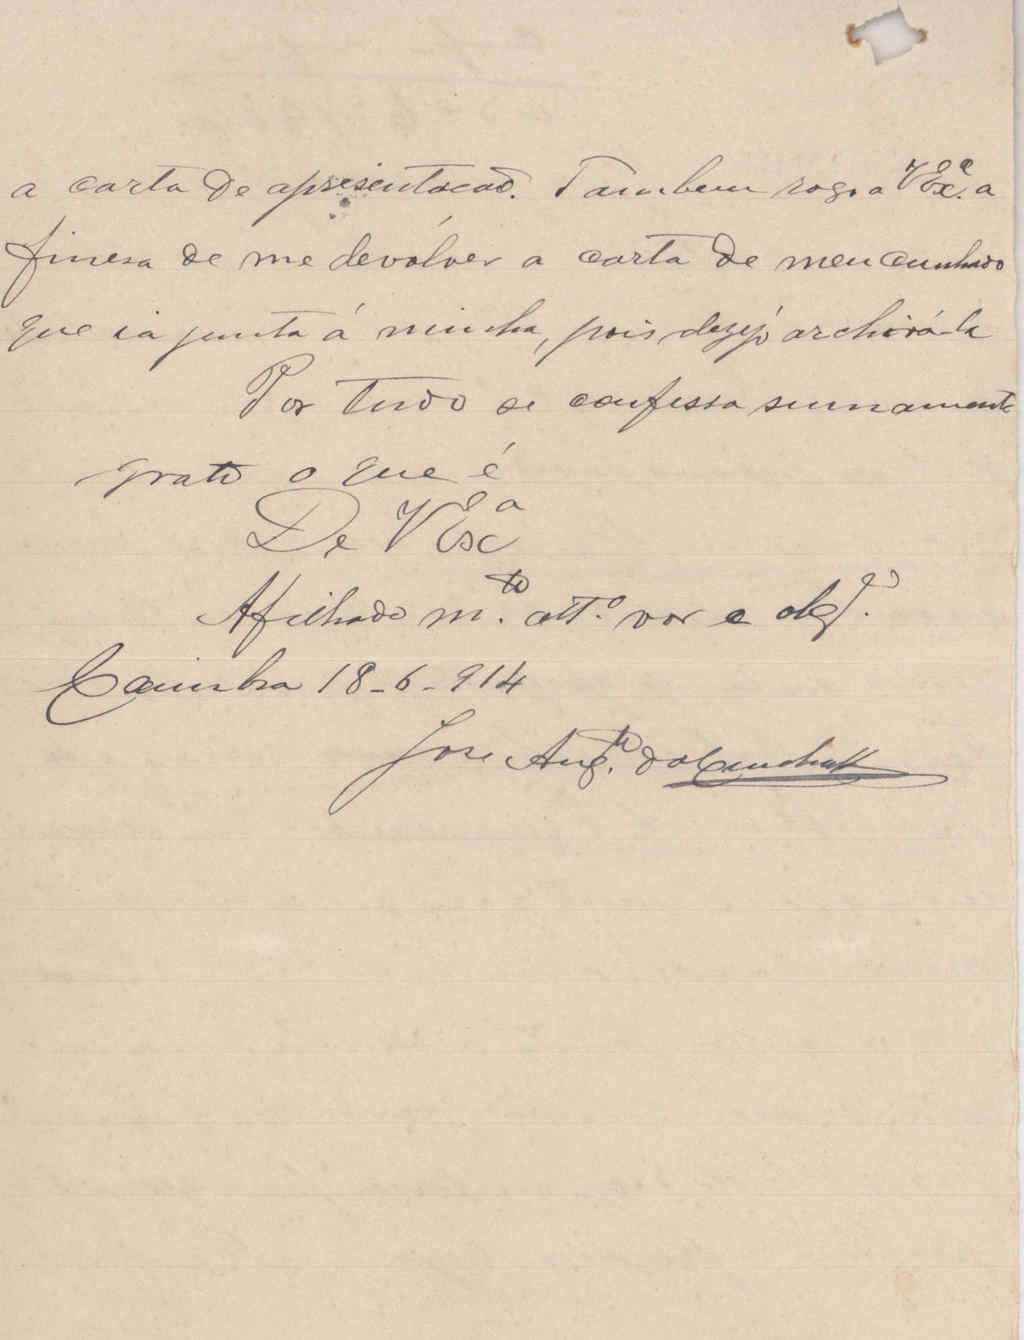 a carta de apresentacaõ. Tambem rogo a VExª. a
finesa de me devólver a carta de meu cunhado
que ia junta á minha, pois dezejo archivá-la
Por tudo se confessa summamente
grato o que é
De VExª
Afilhado m.to att.º vor e obgº.
Coimbra 18-6-914
Jose Augto. da Cunha